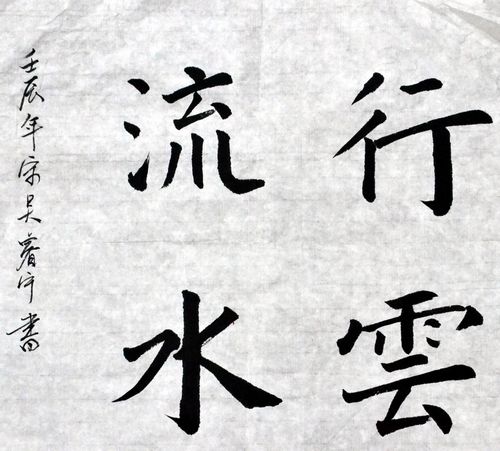 行雲
流水
壬辰年吴睿宇書